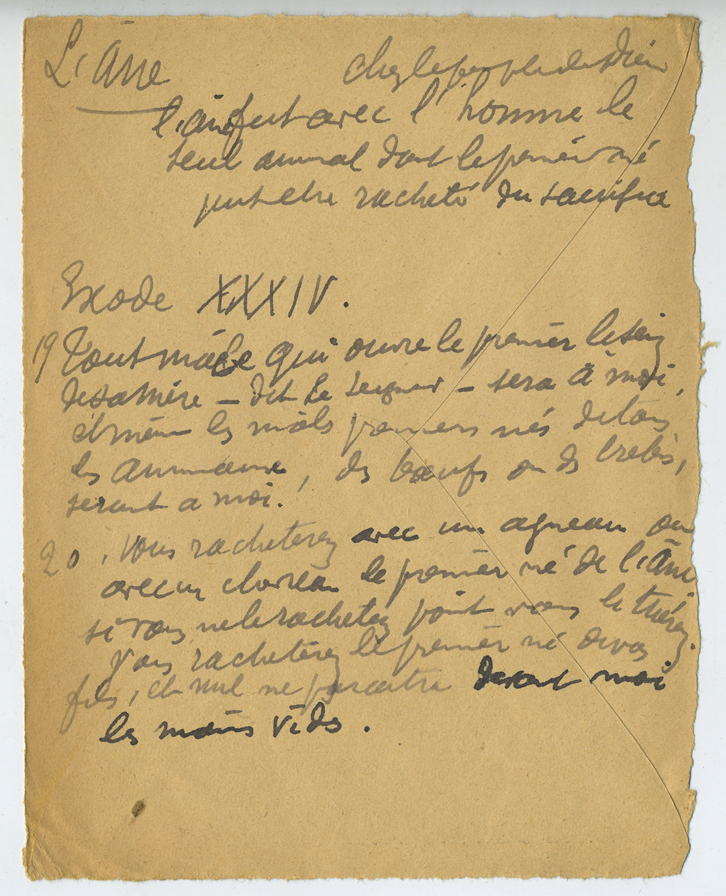 L'Âne chez le peuple de Dieu
l'âne fut avec l'homme le
seul animal dont le premier né
put etre racheté du sacrifice
Exode XXXIV.
19 Tout mâle qui ouvre le premier le sein
de sa mère – dit le Seigneur – sera à moi,
et même les mâles premiers nés de tous
les animaux, des bœufs ou des brebis,
seront a moi.
20. Vous racheterez avec un agneau ou
avec un chevreau le premier né de l'âne
si vous ne le rachetez point vous le tuérez.
Vous racheterez le premier né de vos
fils, et nul ne paraitra devant moi
les mains vides.